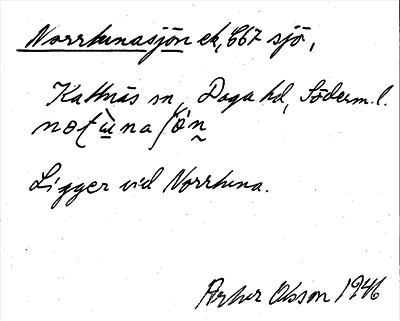 Norrtunasjön ek, 667 sjö,
Kattnäs sn, Daga hd, Söderm. l.
Ligger vid Norrtuna.
Arthur Olsson 1946